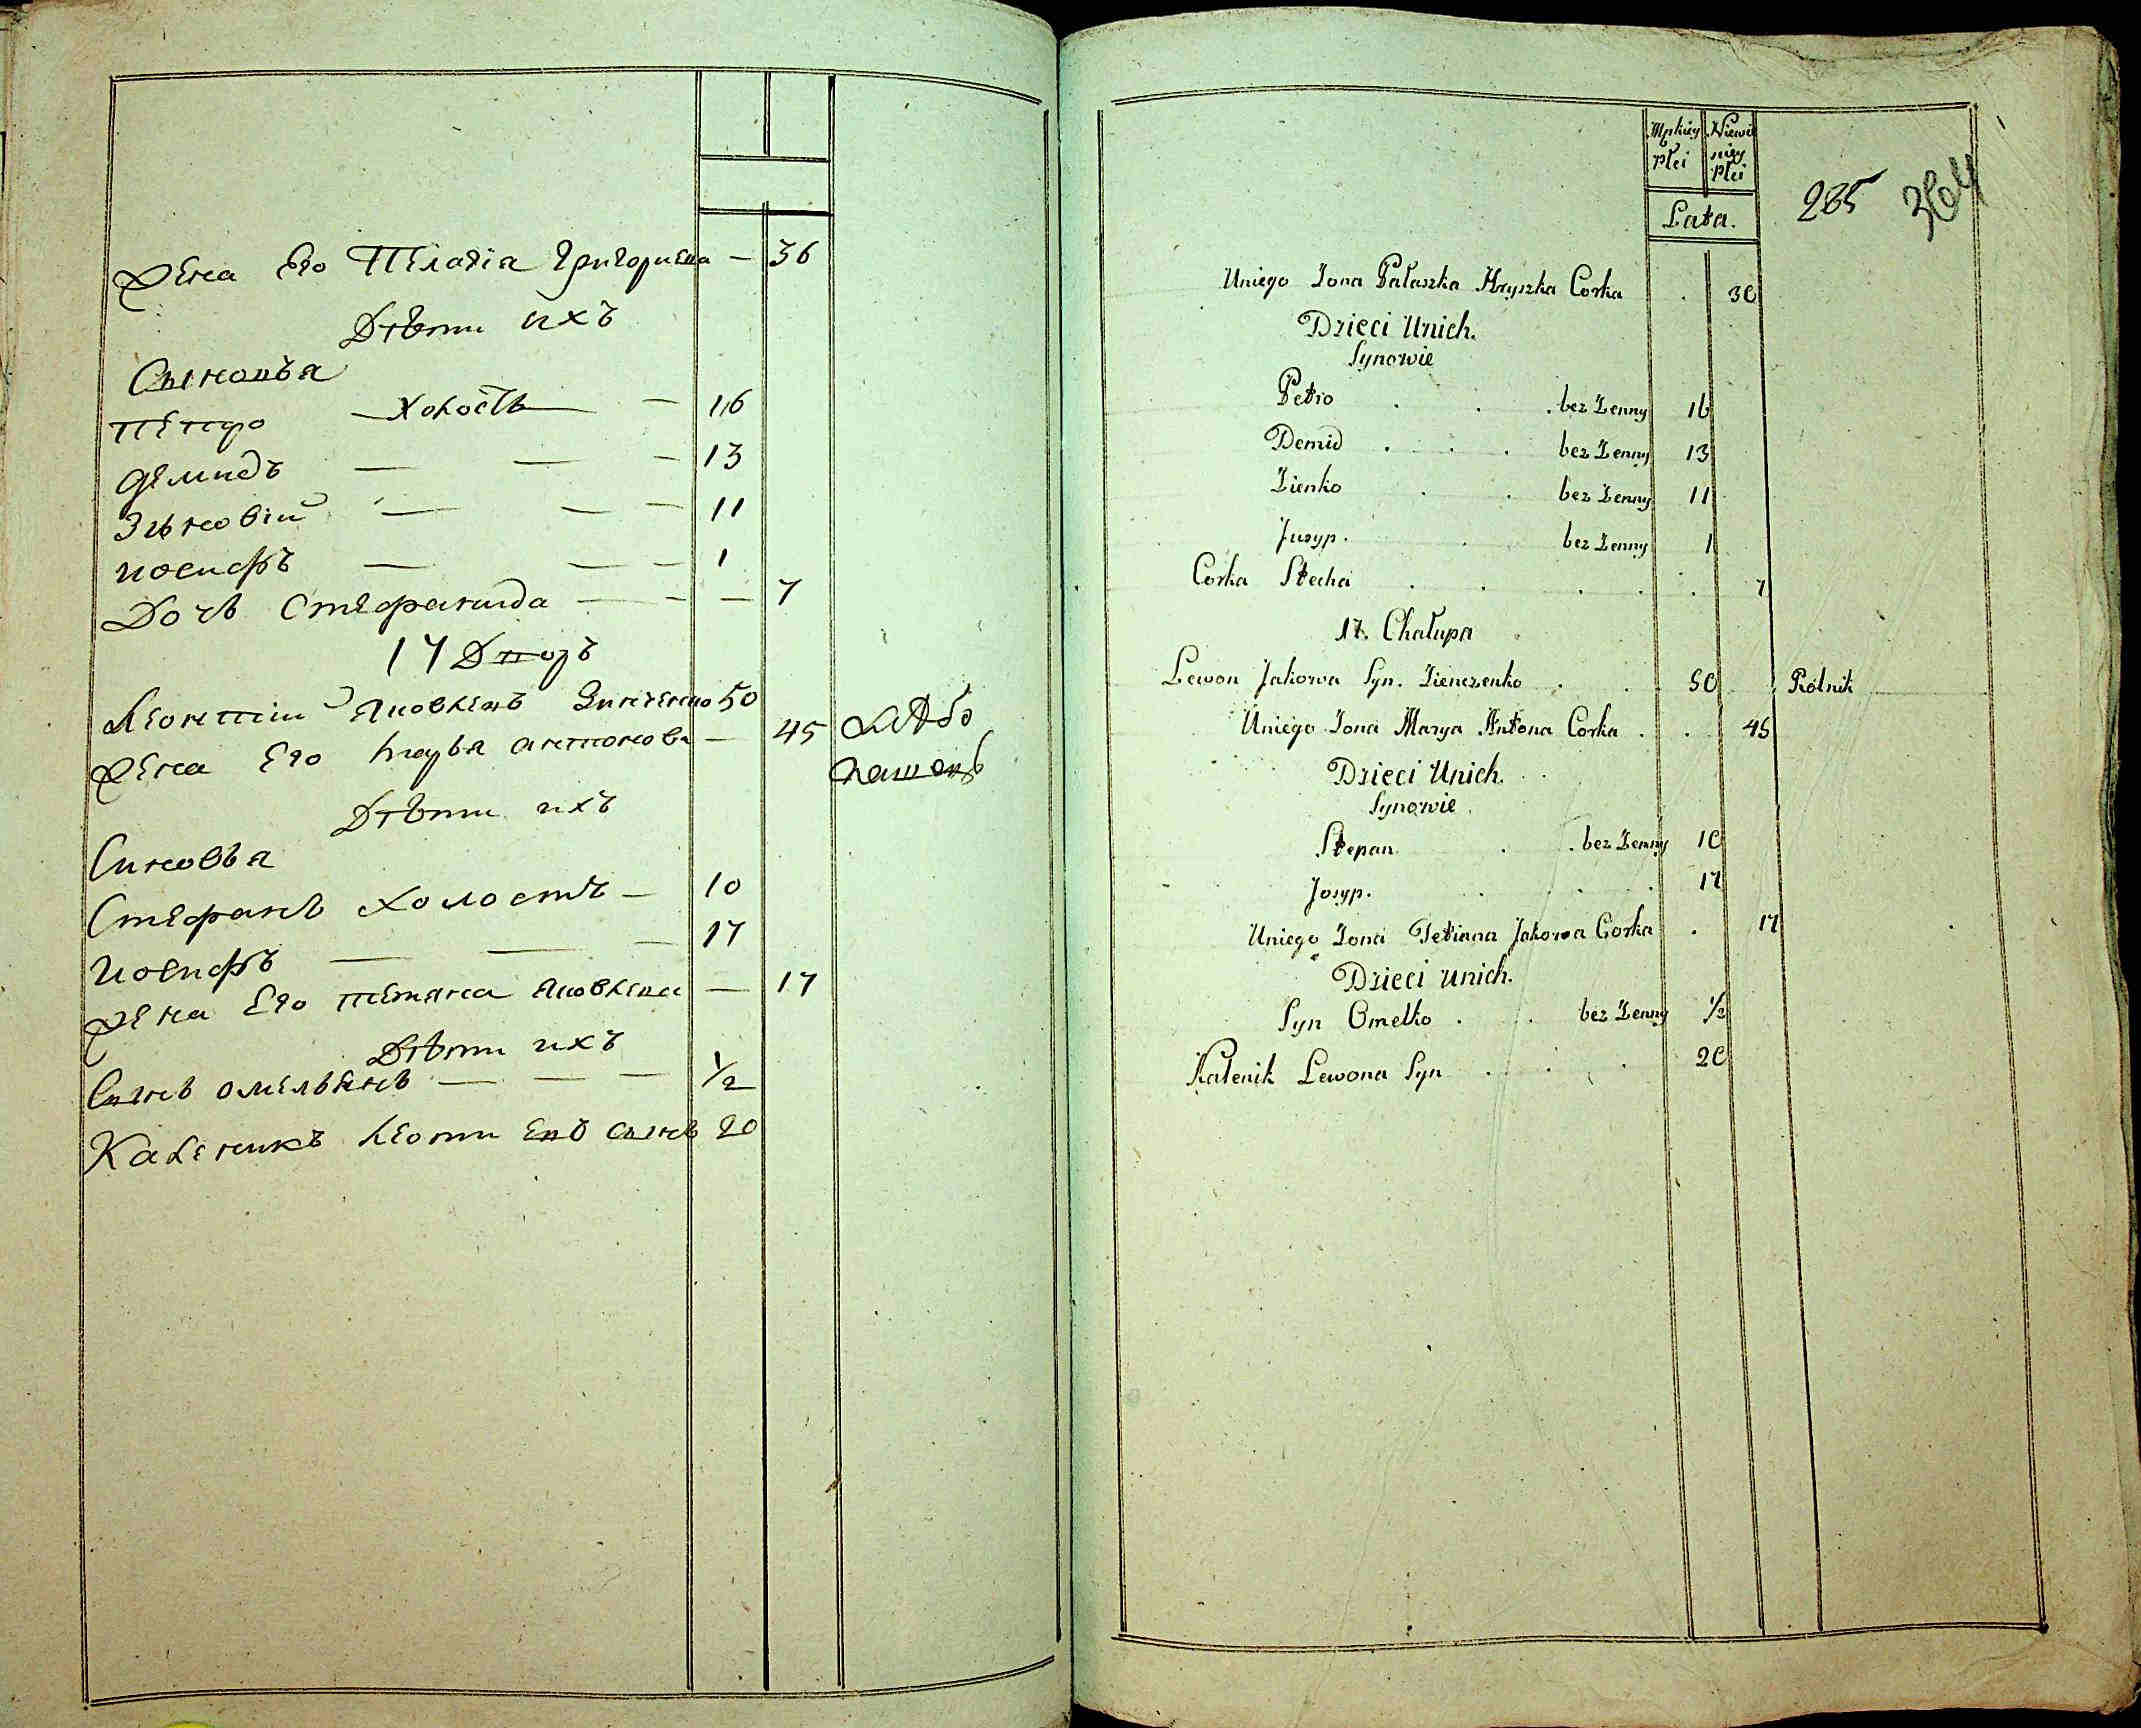 Жена Его Пелагіа Григориева — 36
Дѣти ихъ
Сыновья
Петро — Холостъ — 16
Демидъ — — — 13
Зѣновій — — — 11
Иосифъ — — — 1
Дочь Стефанида — — — 7
17 Дворъ
Леонтій Яковлевъ Зинченко 50
Жена Его Марья Антонова — 45 Хлѣбо
пашецъ
Дѣти ихъ
Синовья
Стефанъ Холостъ — 10
Иосифъ — — — 17
Жена Его Тетяна Яковлева — 17
Дѣти ихъ
Сынъ Омельянъ — — — 1/2
Каленикъ Леонтиевъ сынъ 20
Męskiey Płci Niewiesciey Płci
Lata.
285 364
Uniego Żona Pałaszka Hryszka Corka . 36
Dzieci Unich.
Synowie
Petro . . . bez Żenny 16
Demid . . . bez Żenny 13
Zienko . . bez Żenny 11
Jusyp. . bez Żenny 1
Corka Stecha . . . . . 7
17. Chałupa
Lewon Jakowa Syn. Zienczenko . . 50 Rolnik
Uniego Żona Marya Antona Corka . . 45
Dzieci Unich.
Synowie
Stepan . . bez Żenny 10
Josyp. . . . . 17
Uniego Żona Tetiana Jakowa Corka . 17
Dzieci unich.
Syn Omelko . . bez Żenny 1/2
Kalenik Lewona Syn . . . . 20